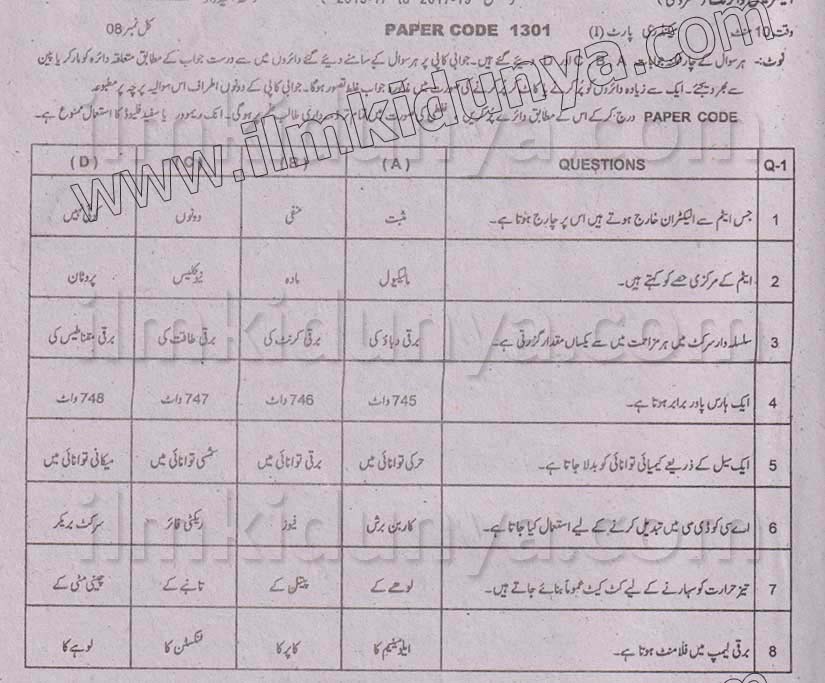 وقت 10 منٹ سیکنڈری پارٹ (I) PAPER CODE 1301 کل نمبر 08
نوٹ:- ہر سوال کے چار جوابات A، B، C اور D دیئے گئے ہیں۔ جوابی کاپی پر ہر سوال کے سامنے دیئے گئے دائروں میں سے درست جواب کے مطابق متعلقہ دائرہ کو مارکر یا پین
سے بھر دیجئے۔ ایک سے زیادہ دائروں کو پُر کرنے یا کاٹ کر پُر کرنے کی صورت میں مذکورہ جواب غلط تصور ہوگا۔ جوابی کاپی کے دونوں اطراف اس سوالیہ پرچہ پر مطبوعہ
PAPER CODE درج کرکے اس کے مطابق دائرے پُر کریں، غلطی کی صورت میں تمام تر ذمہ داری طالب علم پر ہوگی۔ انک ریموور یا سفید فلیوڈ کا استعمال ممنوع ہے۔
Q-1 QUESTIONS (A) (B) (C) (D)
1 جس ایٹم سے الیکٹران خارج ہوتے ہیں اس پر چارج ہوتا ہے۔ مثبت منفی دونوں
2 ایٹم کے مرکزی حصے کو کہتے ہیں۔ مالیکیول مادہ نیوکلیس پروٹان
3 سلسلہ وار سرکٹ میں ہر مزاحمت میں سے یکساں مقدار گزرتی ہے۔ برقی دباؤ کی برقی کرنٹ کی برقی طاقت کی برقی مقناطیس کی
4 ایک ہارس پاور برابر ہوتا ہے۔ 745 واٹ 746 واٹ 747 واٹ 748 واٹ
5 ایک سیل کے ذریعے کیمیائی توانائی کو بدلا جاتا ہے۔ حرکی توانائی میں برقی توانائی میں شمسی توانائی میں میکانی توانائی میں
6 اے سی کو ڈی سی میں تبدیل کرنے کے لیے استعمال کیا جاتا ہے۔ کاربن برش فیوز ریکٹی فائر سرکٹ بریکر
7 تیز حرارت کو سہارنے کے لیے کٹ کیٹ عموماً بنائے جاتے ہیں۔ لوھے کے پیتل کے تانبے کے چینی مٹی کے
8 برقی لیمپ میں فلامنٹ ہوتا ہے۔ ایلومینیم کا کاپر کا ٹنگسٹن کا لوہے کا
www.ilmkidunya.com
ilmkidunya.com
ilmkidunya.com
ilmkidunya.com